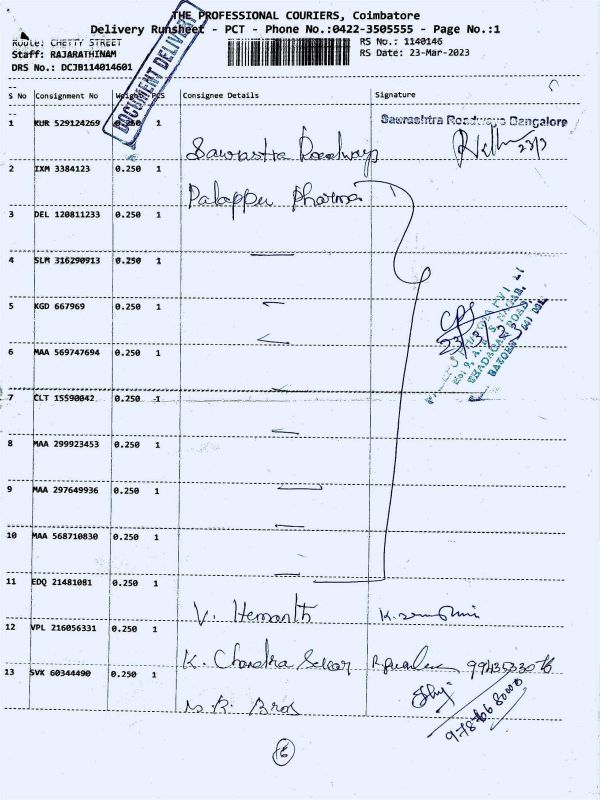 THE PROFESSIONAL COURIERS, Coimbatore
Delivery Runsheet - PCT - Phone No.:0422-3505555 - Page No.:1
Route: CHETTY STREET
Staff: RAJARATHINAM
DRS No.: DCJB114014601
RS No.: 1140146
RS Date: 23-Mar-2023
DOCUMENT DELIVERY
S No Consignment No Weight PCS Consignee Details Signature
1 KUR 529124269 0.250 1 Sawrastra Roadways Sawrashtra Roadways Bangalore
23/3
2 IXM 3384123 0.250 1 Palappu Pharma
3 DEL 120811233 0.250 1
4 SLM 316290913 0.250 1
5 KGD 667969 0.250 1
23/3/23
6 MAA 569747694 0.250 1
7 CLT 15590042 0.250 1
8 MAA 299923453 0.250 1
9 MAA 297649936 0.250 1
10 MAA 568710830 0.250 1
11 EDQ 21481081 0.250 1 V. Hemanth
12 VPL 216056331 0.250 1 K. Chandra Sekar
13 SVK 60344490 0.250 1 M.R. Bros